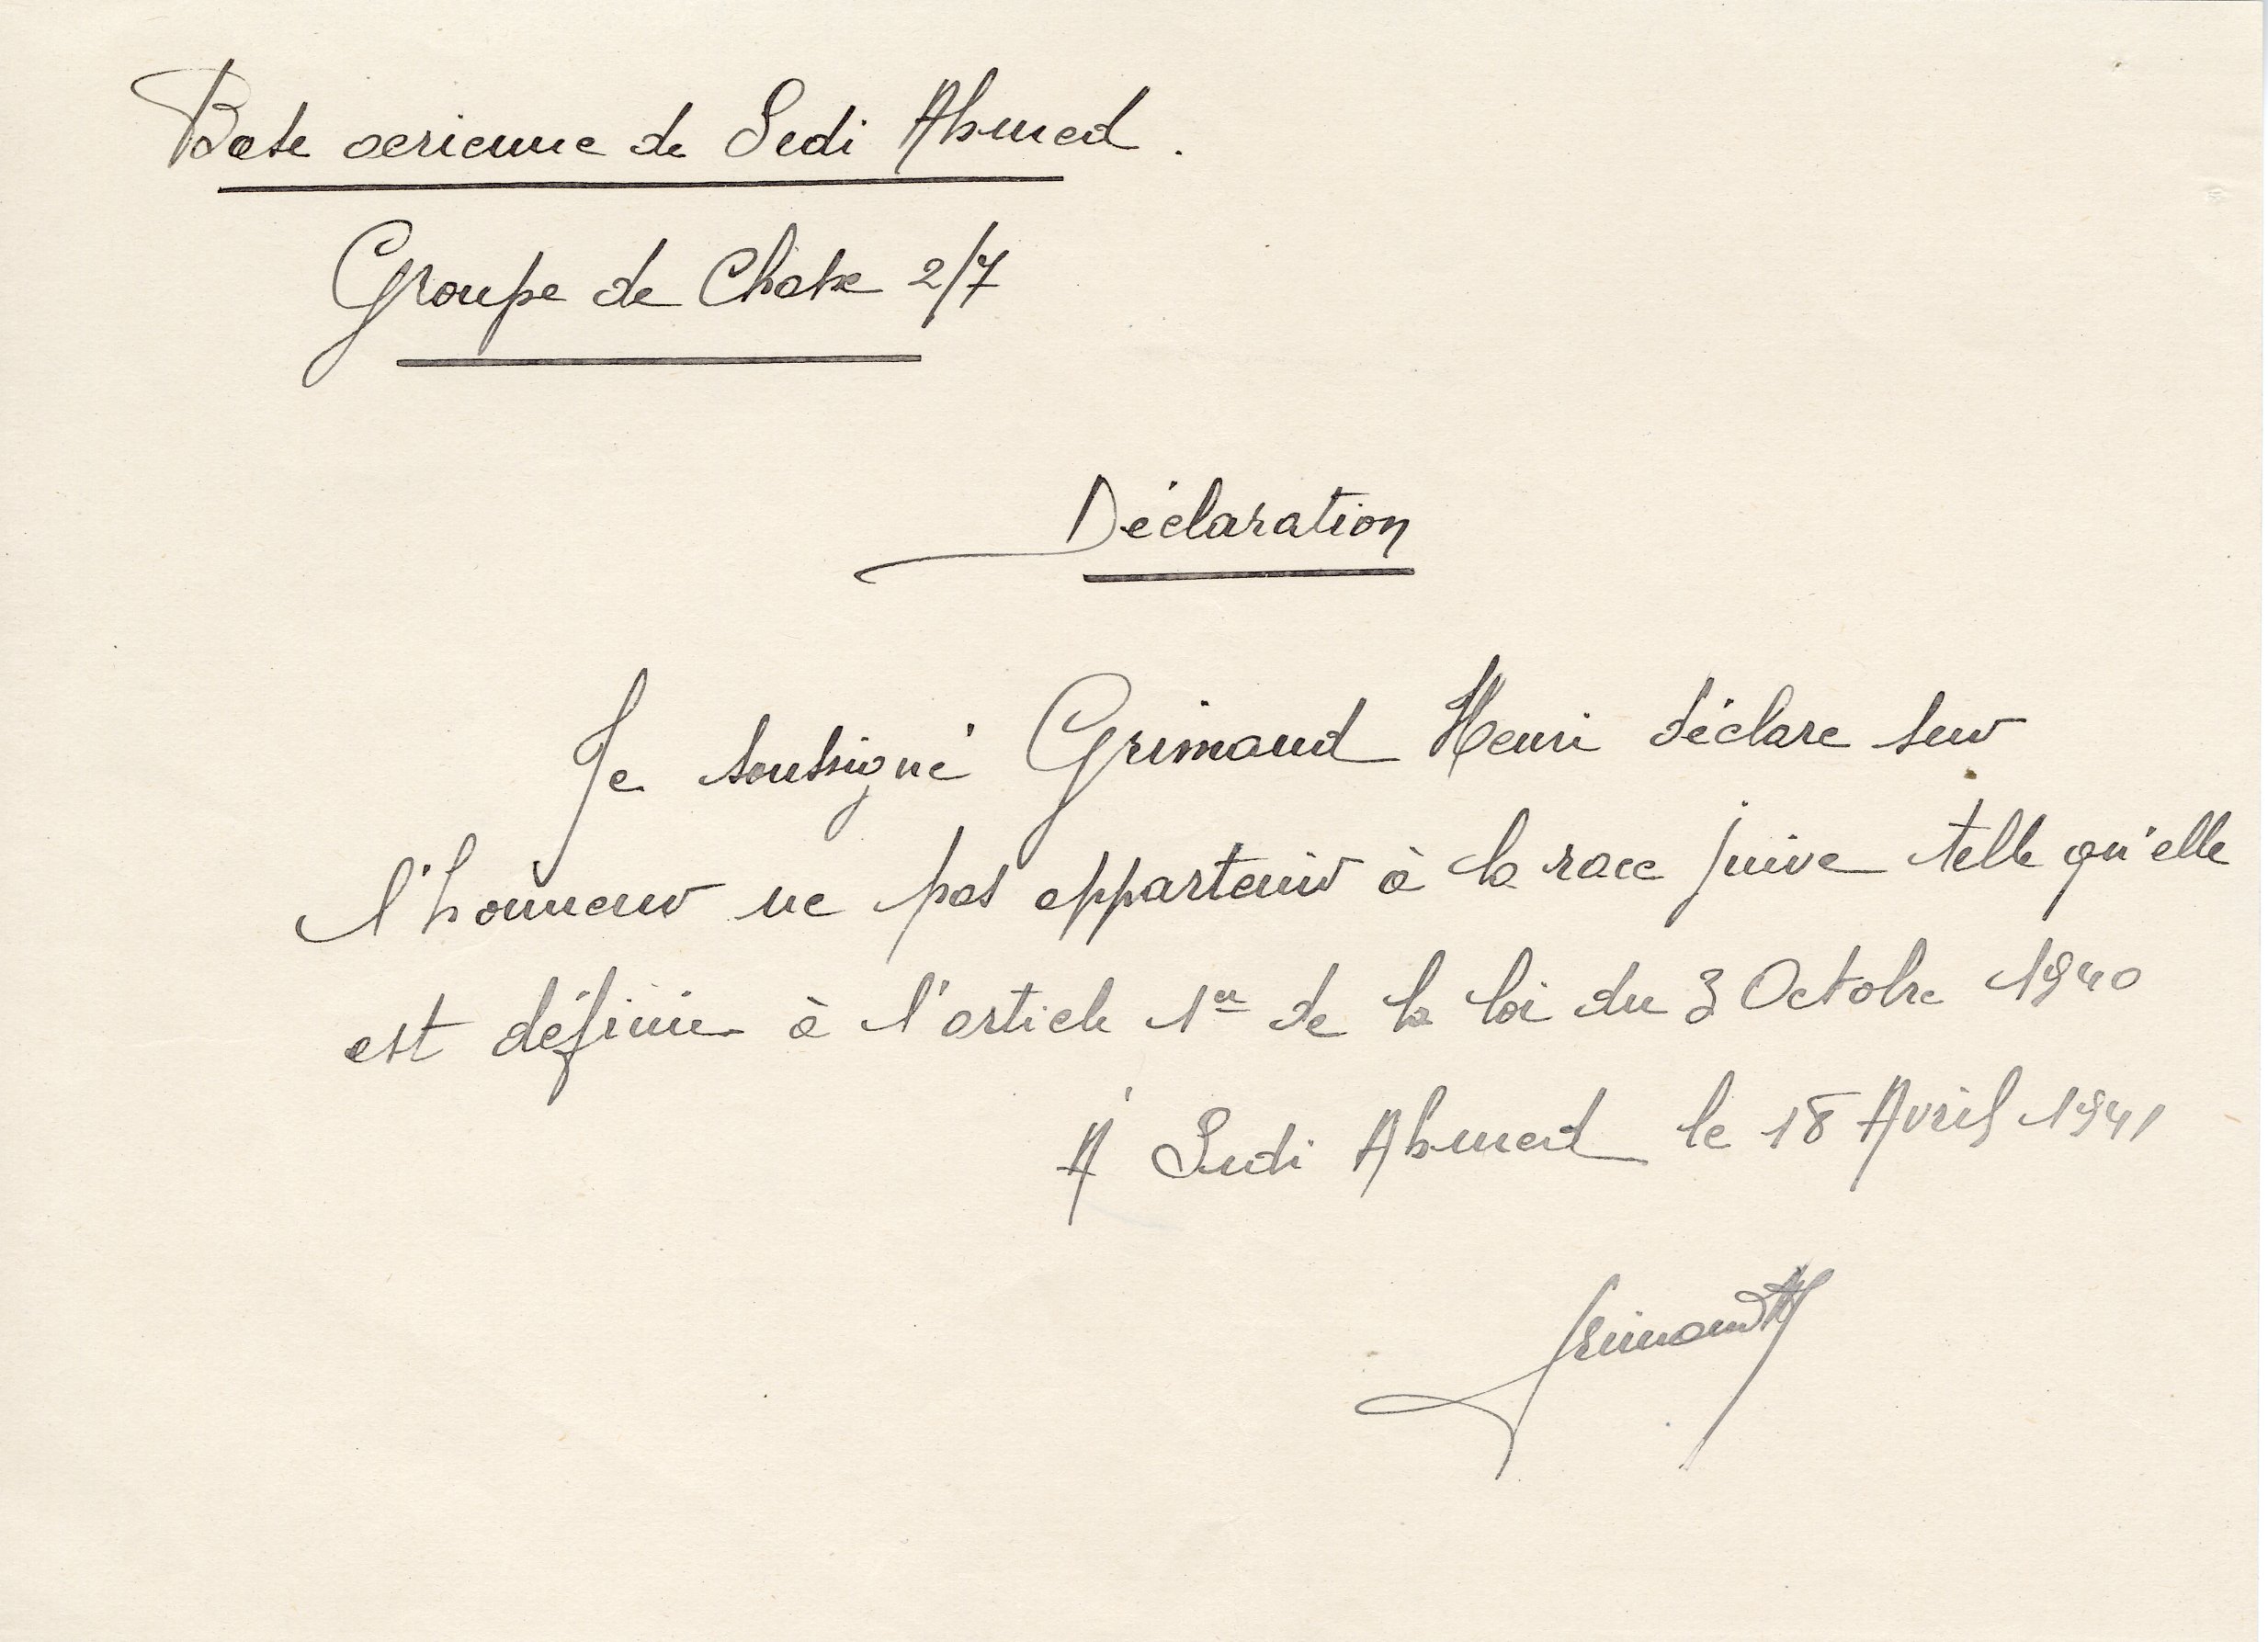 Base aerienne de Sidi Ahmed.
Groupe de Chasse 2/7
Déclaration
Je soussigné Grimaud Henri déclare sur
l'honneur ne pas appartenir à la race juive telle qu'elle
est définie à l'article 1er de la loi du 3 Octobre 1940
A Sidi Ahmed le 18 Avril 1941
Grimaud H